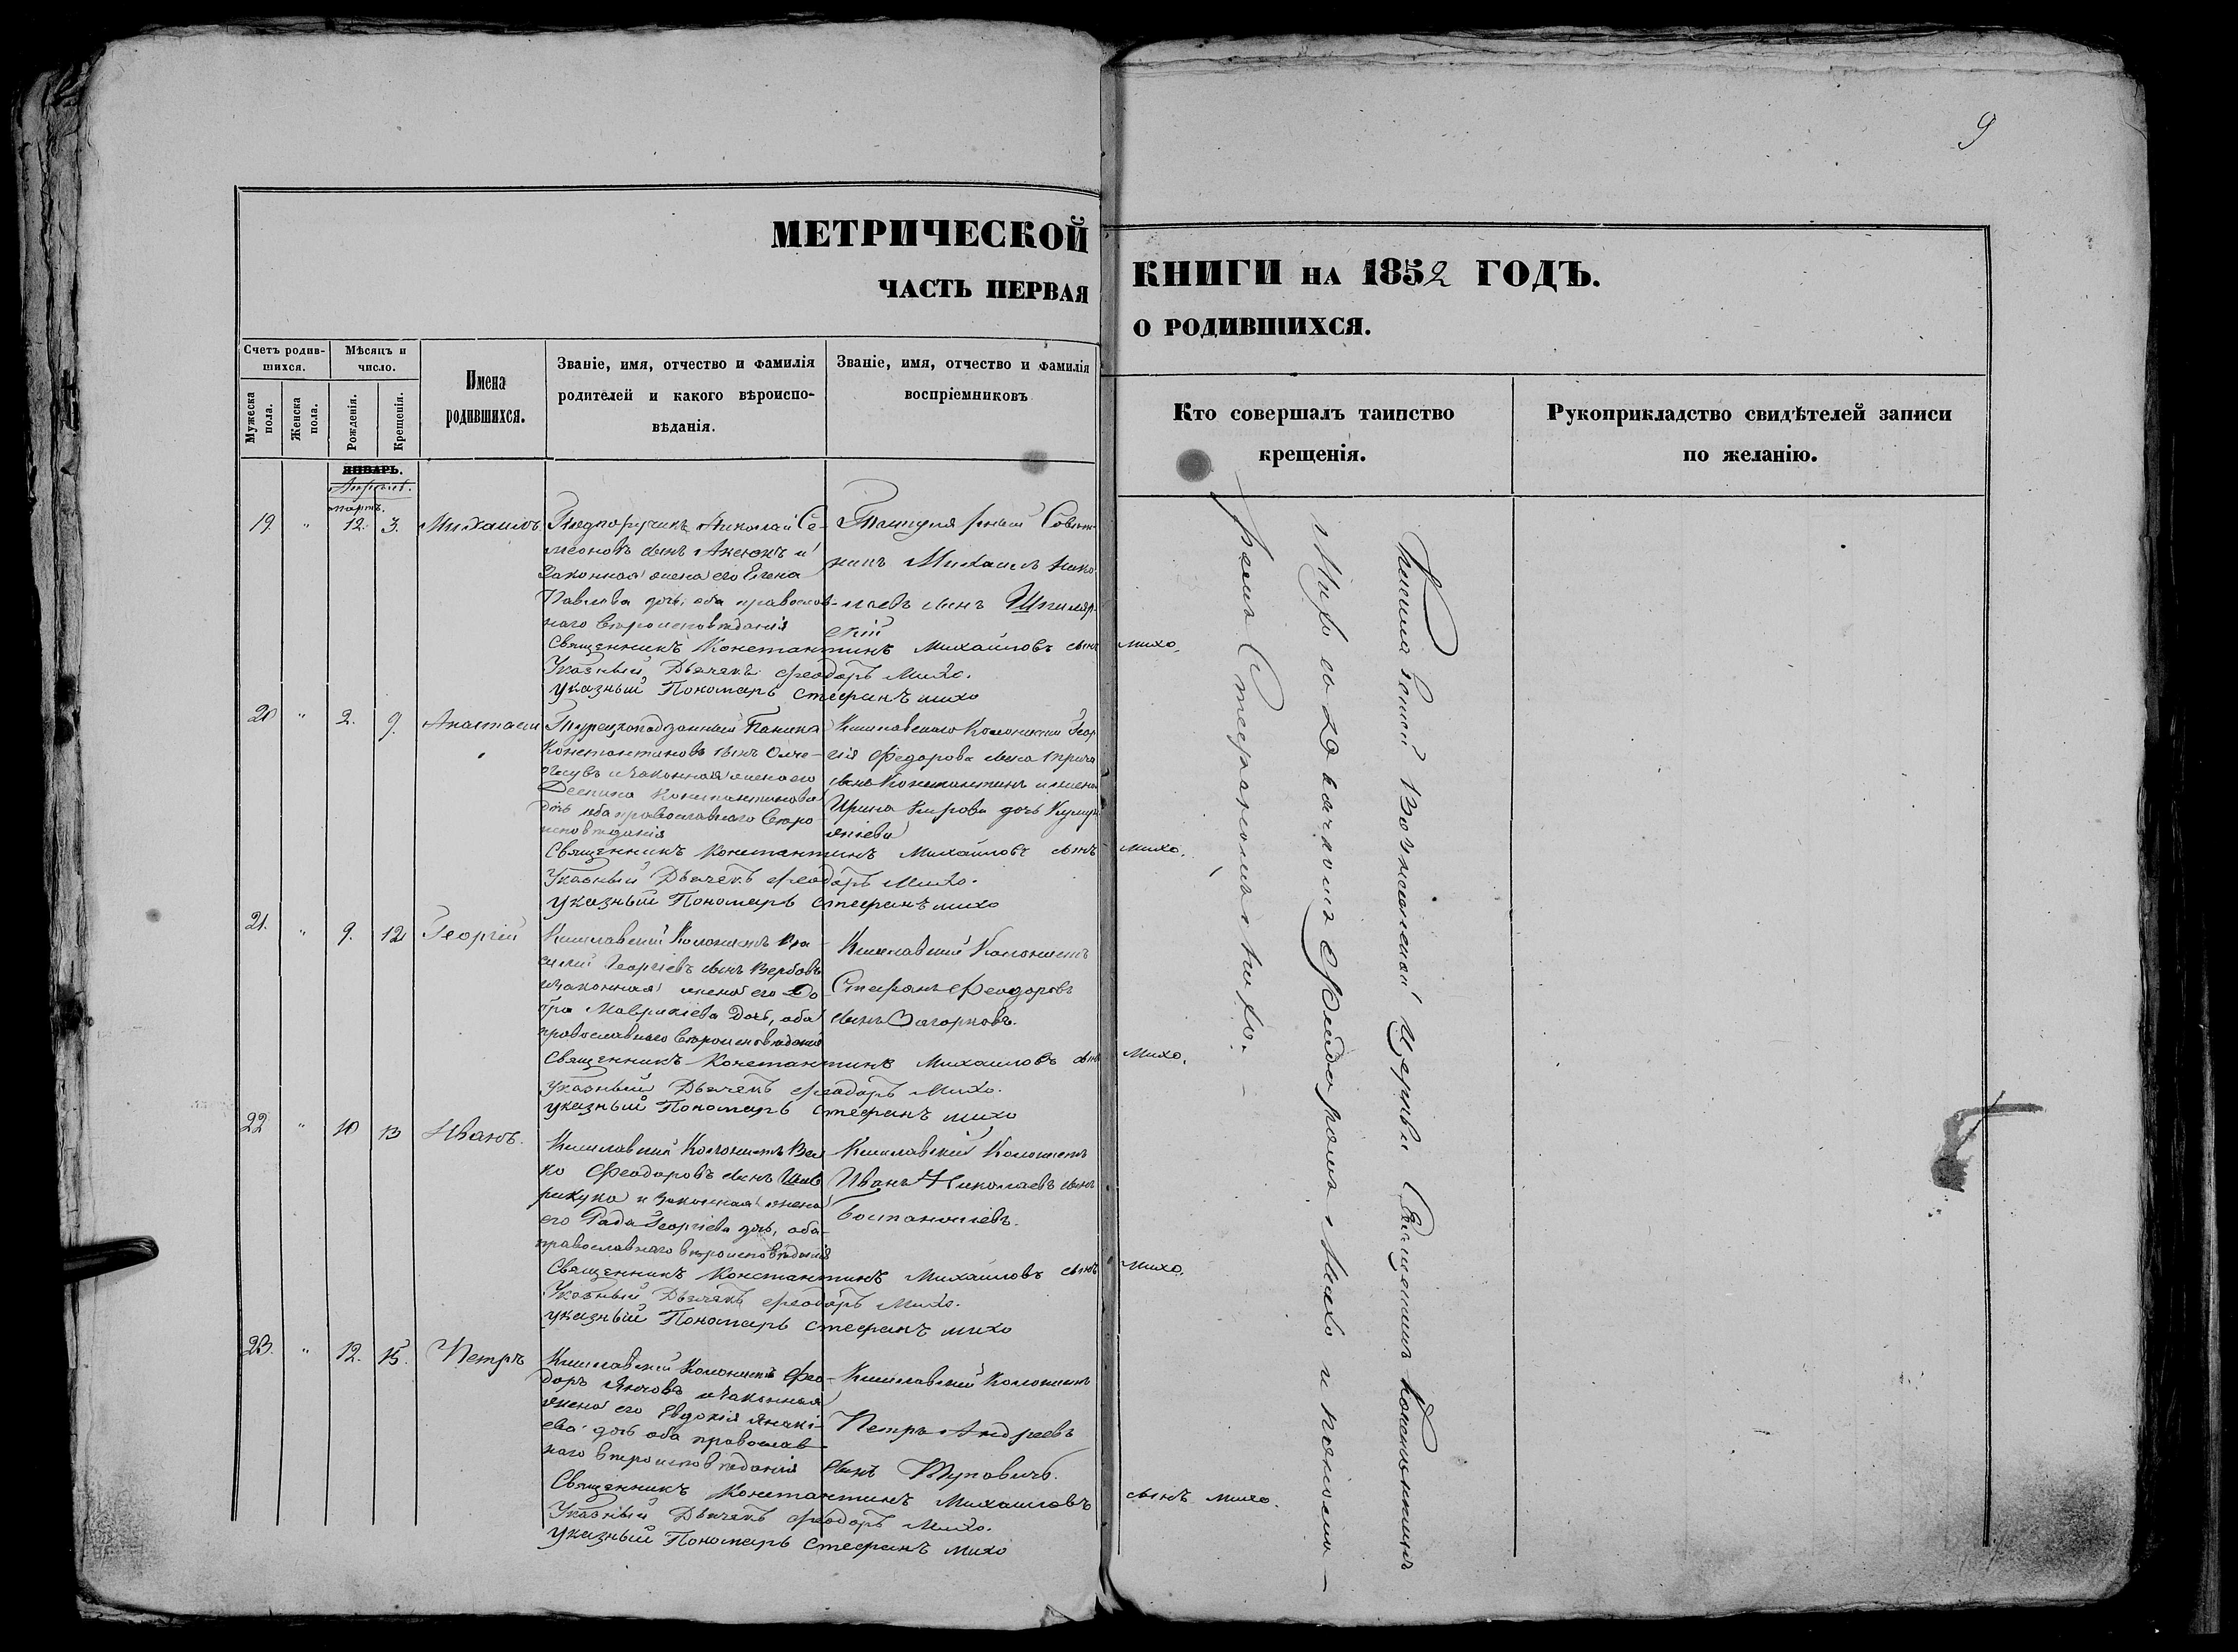 9
МЕТРИЧЕСКОЙ
ЧАСТЬ ПЕРВАЯ
КНИГИ НА 1852 ГОДЪ.
О РОДИВШИХСЯ.
Счетъ родив-
шихся.
Мужеска
пола.
Женска
пола.
Мѣсяцъ и
число.
Рожденія.
Крещенія.
Имена
родившихся.
Званіе, имя, отчество и фамилія
родителей и какого вѣроиспо-
вѣданія.
Званіе, имя, отчество и фамилія
воспріемниковъ
Кто совершалъ таинство
крещенія.
Рукоприкладство свидѣтелей записи
по желанію.
ЯНВАРЬ.
Апрель.
мартъ.
19 " 12. 3. Михаилъ
Подпоручикъ Николай Се-
меоновъ сынъ и
Законная жена его Елена
Павлова дочь, оба православ-
наго вѣроисповѣданія
Титулярный Совѣт-
никъ Михаилъ Нико-
лаевъ сынъ
скій
Священникъ Константинъ Михаиловъ сынъ Михо.
Указный Дьячекъ Феодоръ Михо.
указный Пономарь Стефанъ михо
20 " 2. 9. Анастасій
Турецкоподданный
Константиновъ сынъ
и законная жена его
Деспина Константинова
дочь оба православнаго вѣро-
исповѣданія
Кишлавскаго Колониста Геор-
гія Федорова сына
сынъ Константинъ и жена
Ирина Кирова дочь
Священникъ Константинъ Михаиловъ сынъ Михо.
Указный Дьячекъ Феодоръ Михо.
указный Пономарь Стефанъ михо
21. " 9. 12 Георгій
Кишлавскій Колонистъ Ва-
силій Георгіевъ сынъ Вербовъ
и законная жена его До-
бра Маврикіева Дочь, оба
православнаго вѣроисповѣданія
Кишлавскій Колонистъ
Стефанъ Феодоровъ
сынъ Загорковъ.
Священникъ Константинъ Михаиловъ сынъ Михо.
Указный Дьячекъ Феодоръ Михо.
указный Пономарь Стефанъ михо
22 " 10 13 Иванъ.
Кишлавскій Колонистъ
ко Феодоровъ сынъ
и законная жена
его Рада Георгіева дочь, оба
православнаго вѣроисповѣданія
Кишлавскій Колонистъ
Иванъ Николаевъ сынъ
Священникъ Константинъ Михаиловъ сынъ Михо.
Указный Дьячекъ Феодоръ Михо.
указный Пономарь Стефанъ михо
23. " 12. 15. Петръ
Кишлавскій Колонистъ Фео-
доръ Янчовъ и законная
жена его Евдокія Янакі-
ева дочь оба православ-
наго вѣроисповѣданія
Кишлавскій Колонистъ
Петръ Андреевъ
сынъ
Священникъ Константинъ Михаиловъ сынъ михо.
Указный Дьячекъ Феодоръ Михо.
указный Пономарь Стефанъ михо
Кишлавской Вознесенской Церкви Священникъ Константинъ
Михо со Дьячкомъ Феодоромъ Михо и понома-
ремъ Стефаномъ Михо. -